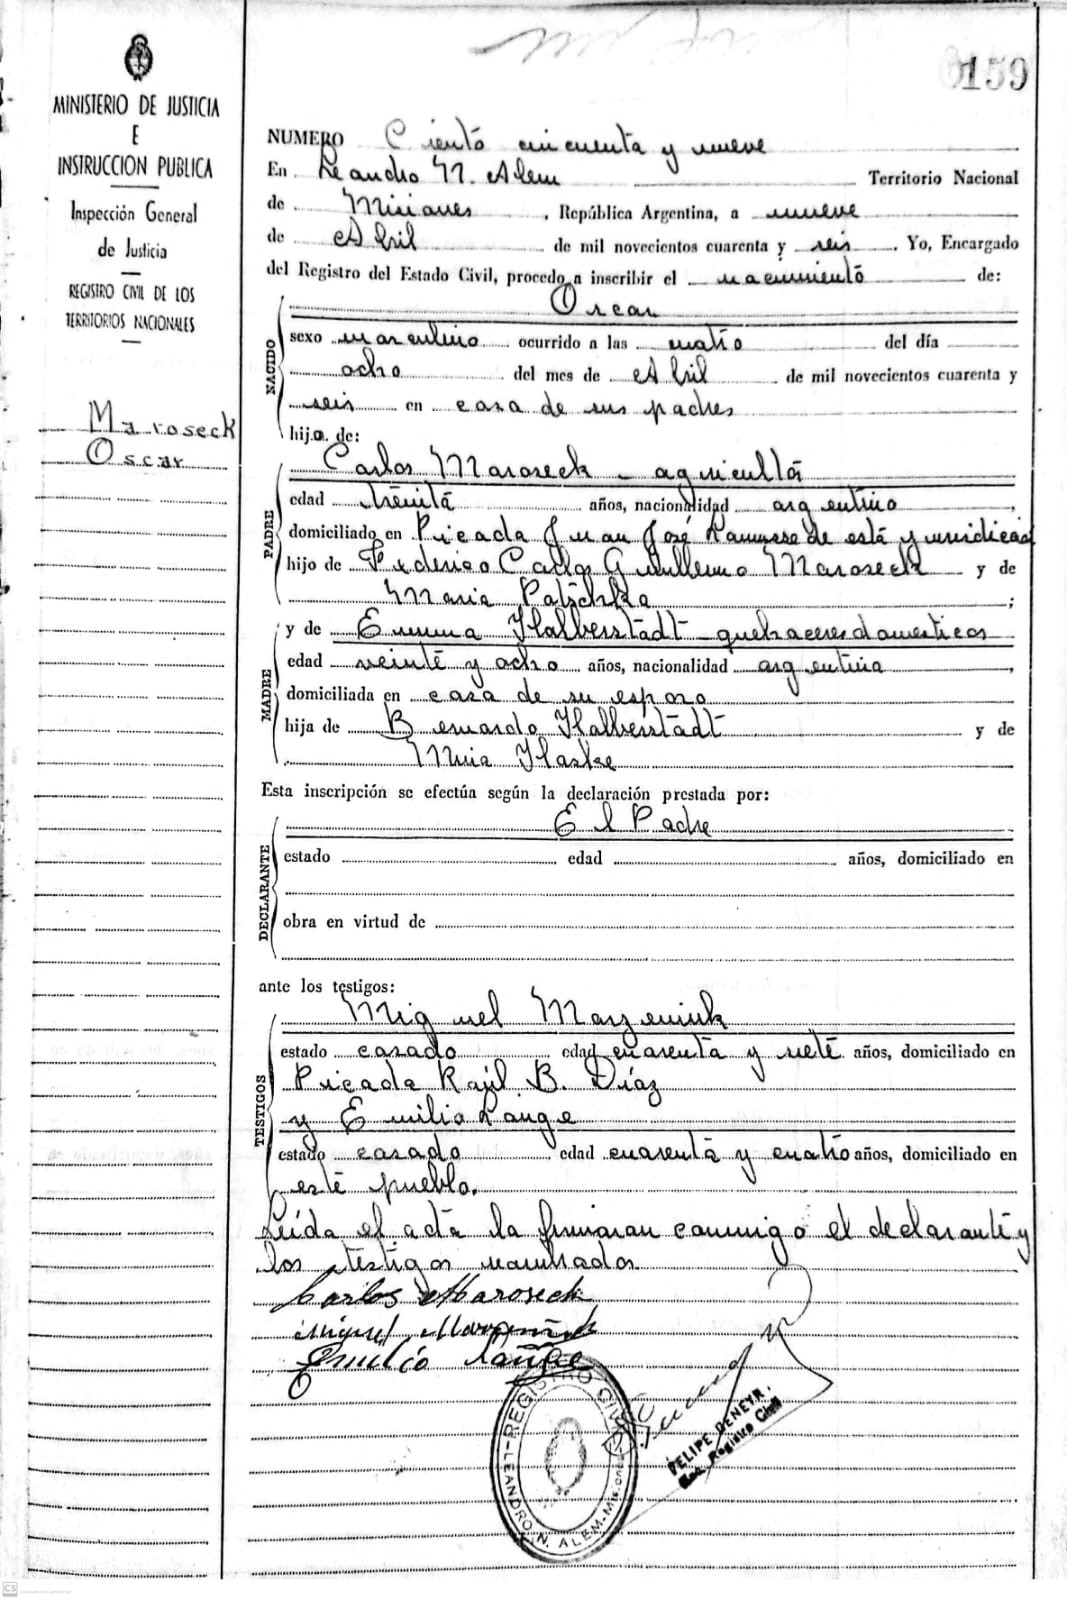 MINISTERIO DE JUSTICIA
E
INSTRUCCION PUBLICA
Inspección General
de Justicia
REGISTRO CIVIL DE LOS
TERRITORIOS NACIONALES
Maroseck
Oscar
159
NUMERO Ciento cincuenta y nueve
En Leandro N. Alem Territorio Nacional
de Misiones, República Argentina, a nueve
de Abril de mil novecientos cuarenta y seis. Yo, Encargado
del Registro del Estado Civil, procedo a inscribir el nacimiento de:
NACIDO
Oscar
sexo masculino ocurrido a las cuatro del día
ocho del mes de Abril de mil novecientos cuarenta y
seis en casa de sus padres
hijo de:
PADRE
Carlos Maroseck - agricultor
edad treinta años, nacionalidad argentino,
domiciliado en Picada Juan José de está
hijo de Federico Carlos Guillermo Maroseck y de
Maria Patschka;
MADRE
y de Emma Halberstadt - quehaceres domesticos
edad veinte y ocho años, nacionalidad argentina,
domiciliada en casa de su esposo
hija de Bernardo Halberstadt y de
Haske
Esta inscripción se efectúa según la declaración prestada por:
DECLARANTE
El Padre
estado edad años, domiciliado en
obra en virtud de
ante los testigos:
TESTIGOS
Miguel
estado casado edad cuarenta y siete años, domiciliado en
Picada Raúl B. Díaz
y Emilio Lange
estado casado edad cuarenta y cuatro años, domiciliado en
este pueblo.
Leída el acta la firmaran conmigo el declarante y
los testigos nombrados
Carlos Maroseck
Miguel
Emilio Lange
REGISTRO CIVIL
LEANDRO N. ALEM-Misiones
FELIPE
Enc. Registro Civil
CS